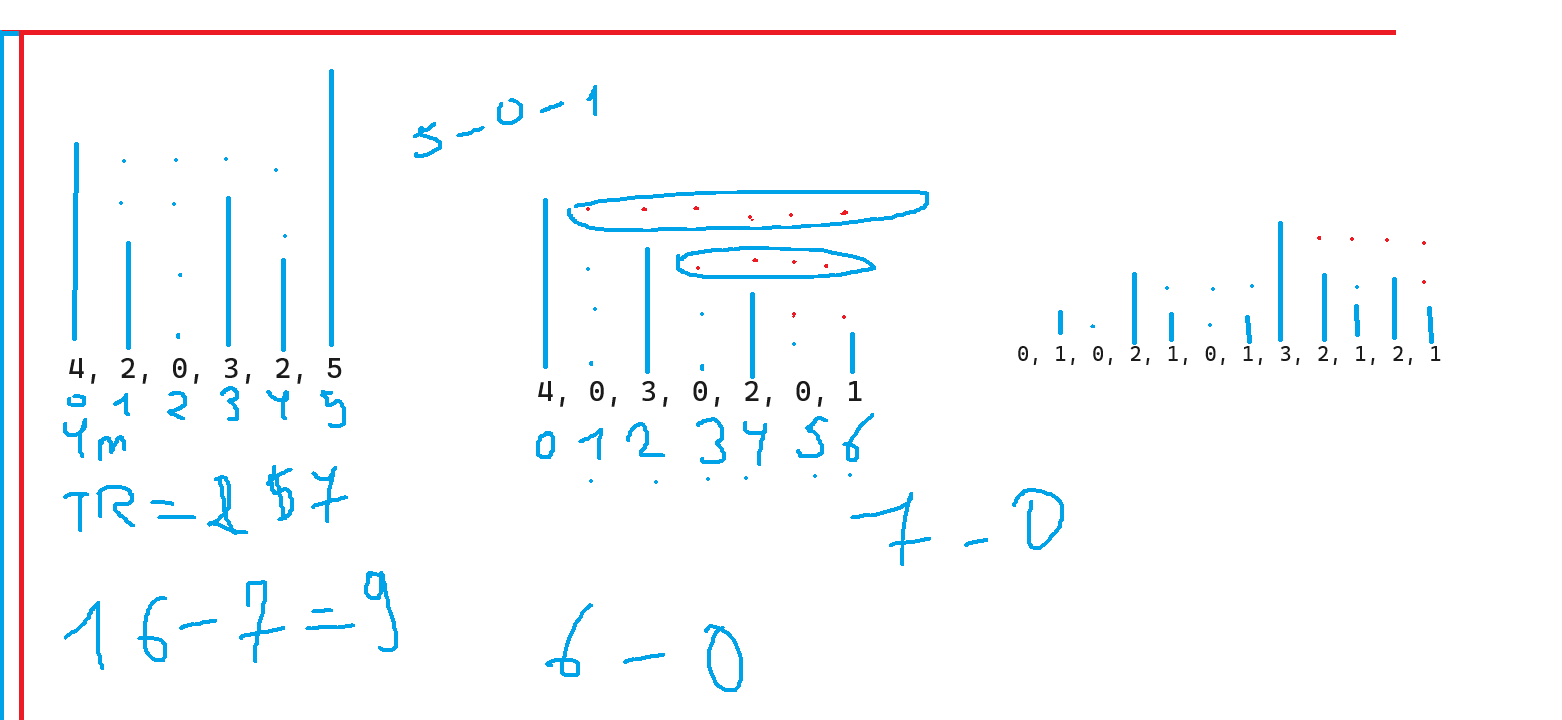 5 - 0 - 1
4, 2, 0, 3, 2, 5
0 1 2 3 4 5
4m
TR = 7
16 - 7 = 9
4, 0, 3, 0, 2, 0, 1
0 1 2 3 4 5 6
7 - 0
6 - 0
0, 1, 0, 2, 1, 0, 1, 3, 2, 1, 2, 1